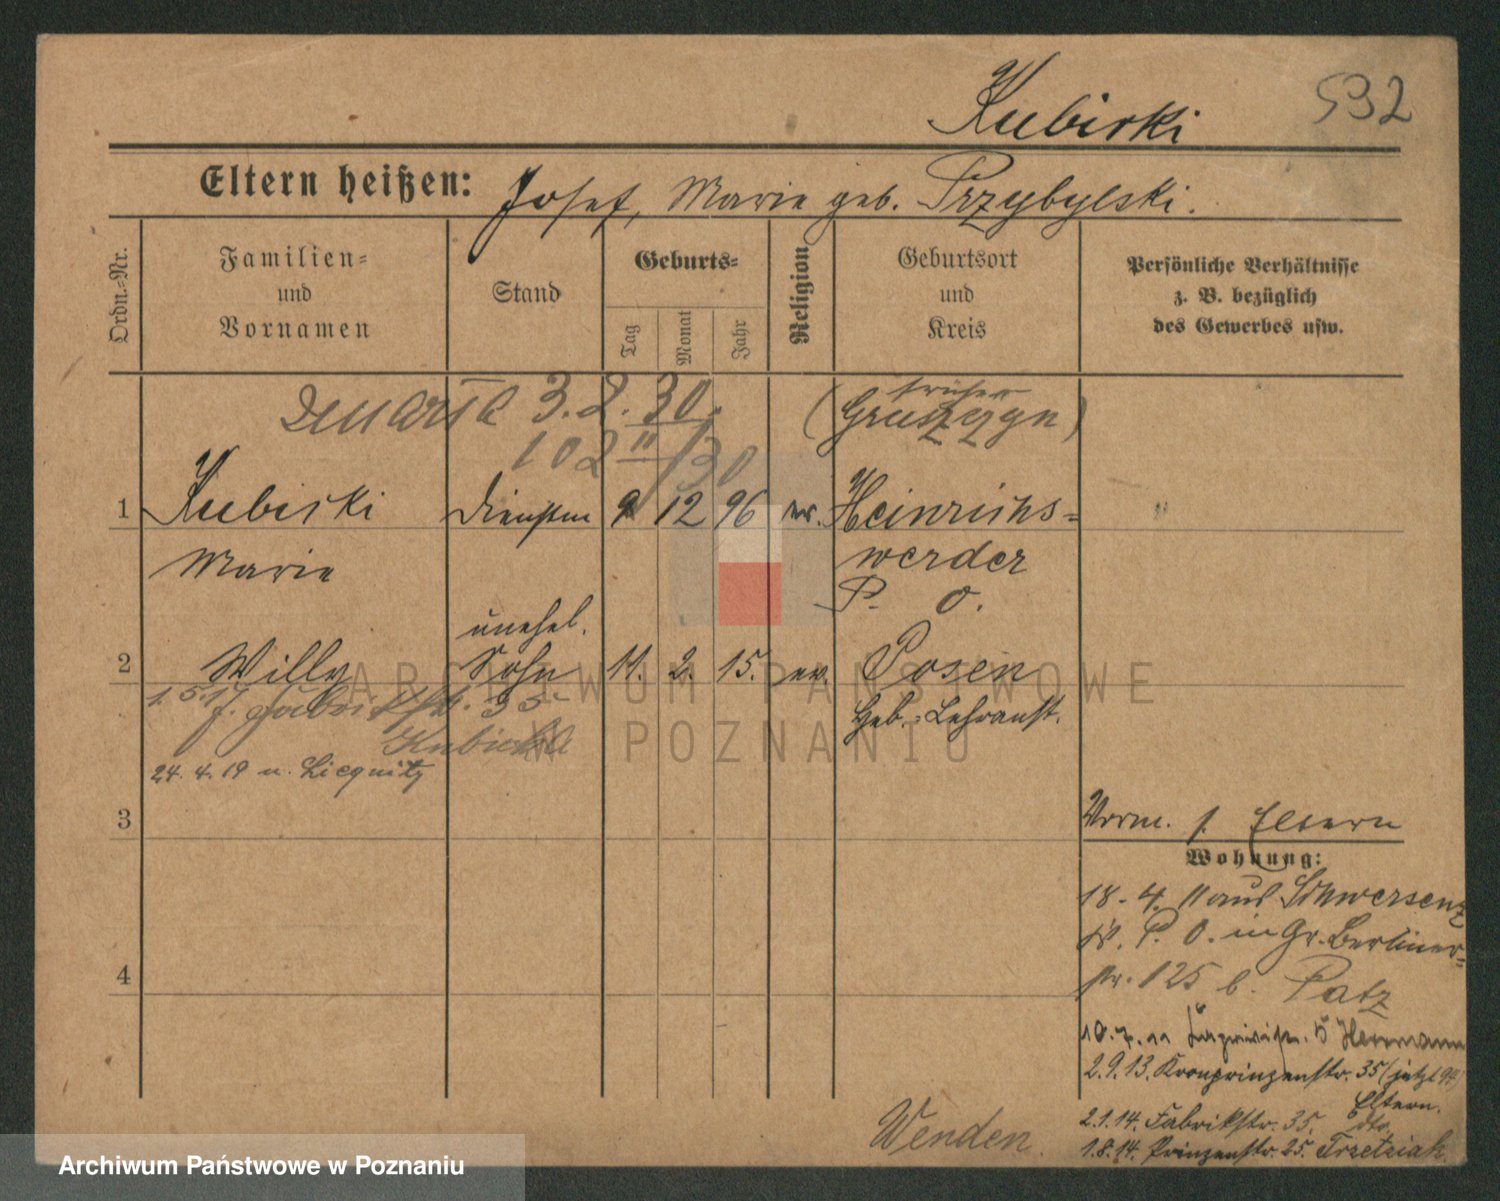 532
Kubiski
Eltern heißen: Josef, Marie geb. Przybylski.
Ordn.-Nr.
Familien-
und
Vornamen
Stand
Geburts-
Tag
Monat
Jahr
Religion
Geburtsort
und
Kreis
Persönliche Verhältnisse
z. B. bezüglich
des Gewerbes usw.
3.2.30.
102
früher
(Gruszczyn)
1 Kubiski 9 12 96 ev. Heinrichs-
Marie werder
P. O.
unehel.
2 Willy Sohn 11. 2. 15. ev. Posen
Heb.-Lehranst.
1.5.17. Fabrikstr. 35
24. 4. 19 n. Liegnitz
3
Vorm. s. Eltern
Wohnung:
18. 4. 11 aus Schwersenz
Kr. P. O. in Gr. Berliner-
str. 125 b. Patz
4
10.7.11 5 Herrmann
2.9.13. Kronprinzenstr. 35 (jetzt 94)
Eltern.
2.1.14. Fabrikstr. 35. dto.
1.8.14. Prinzenstr. 25. Trzetziak.
Wenden.
ARCHIWUM PAŃSTWOWE
W POZNANIU
Archiwum Państwowe w Poznaniu